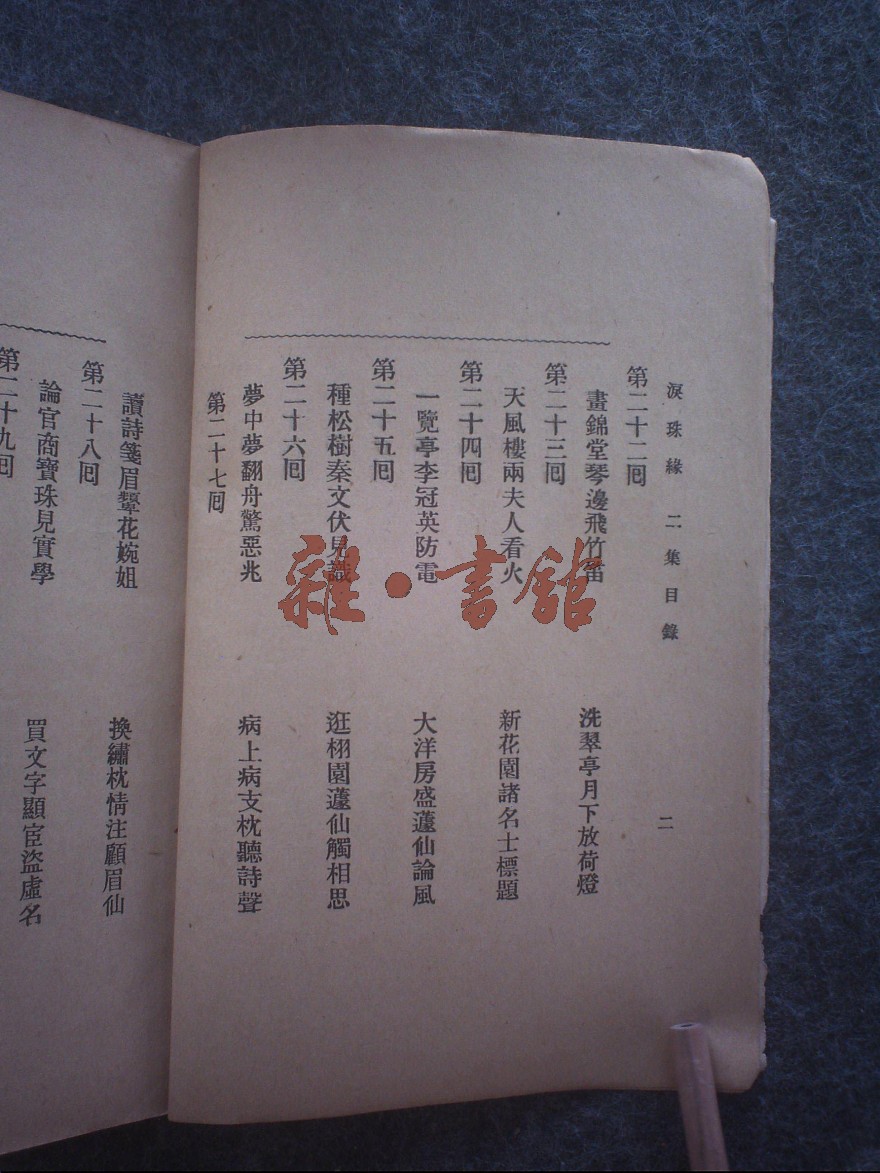 淚珠緣 二集目錄 二
第二十二囘
畫錦堂琴邊飛竹笛 洗翠亭月下放荷燈
第二十三囘
天風樓兩夫人看火 新花園諸名士標題
第二十四囘
一覽亭李冠英防電 大洋房盛蘧仙論風
第二十五囘
種松樹秦文伏見識 逛栩園蘧仙觸相思
第二十六囘
夢中夢翻舟驚惡兆 病上病支枕聽詩聲
第二十七囘
讀詩箋眉顰花婉姐 換繡枕情注顧眉仙
第二十八囘
論官商寶珠見實學 買文字顯宦盜虛名
第二十九囘
雜·書館